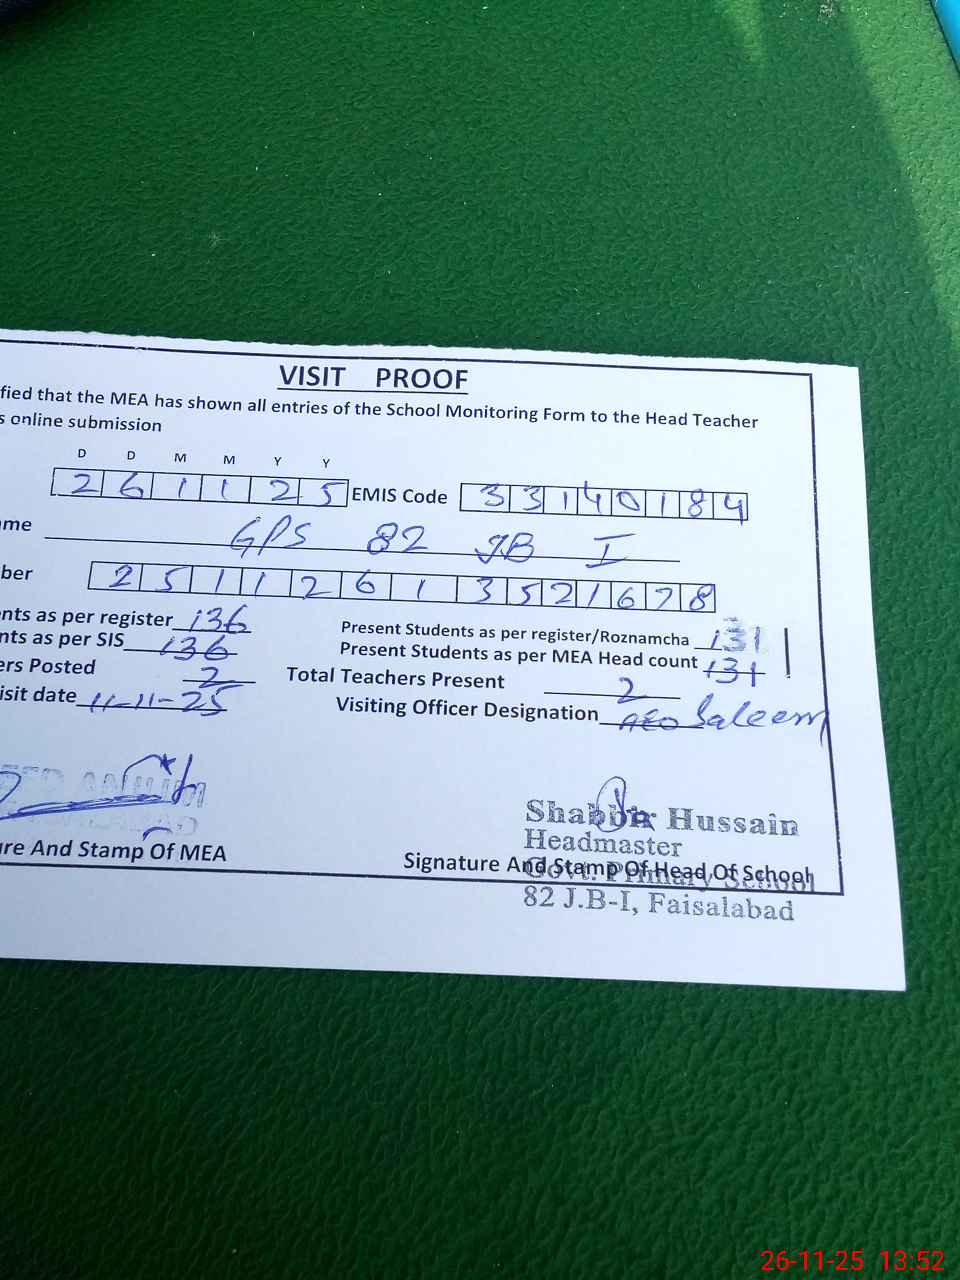 VISIT PROOF
fied that the MEA has shown all entries of the School Monitoring Form to the Head Teacher
s online submission
D D M M Y Y
2 6 1 1 2 5 EMIS Code 3 3 1 4 0 1 8 4
me GPS 82 JB I
ber 2 5 1 1 2 6 1 3 5 2 1 6 7 8
nts as per register 136 Present Students as per register/Roznamcha 131
nts as per SIS 136 Present Students as per MEA Head count 131
ers Posted 2 Total Teachers Present 2
isit date 11-11-25 Visiting Officer Designation AEO Saleem
Shabbir Hussain
Headmaster
re And Stamp Of MEA Signature And Stamp Of Head Of School
Govt. Primary School
82 J.B-I, Faisalabad
26-11-25 13:52